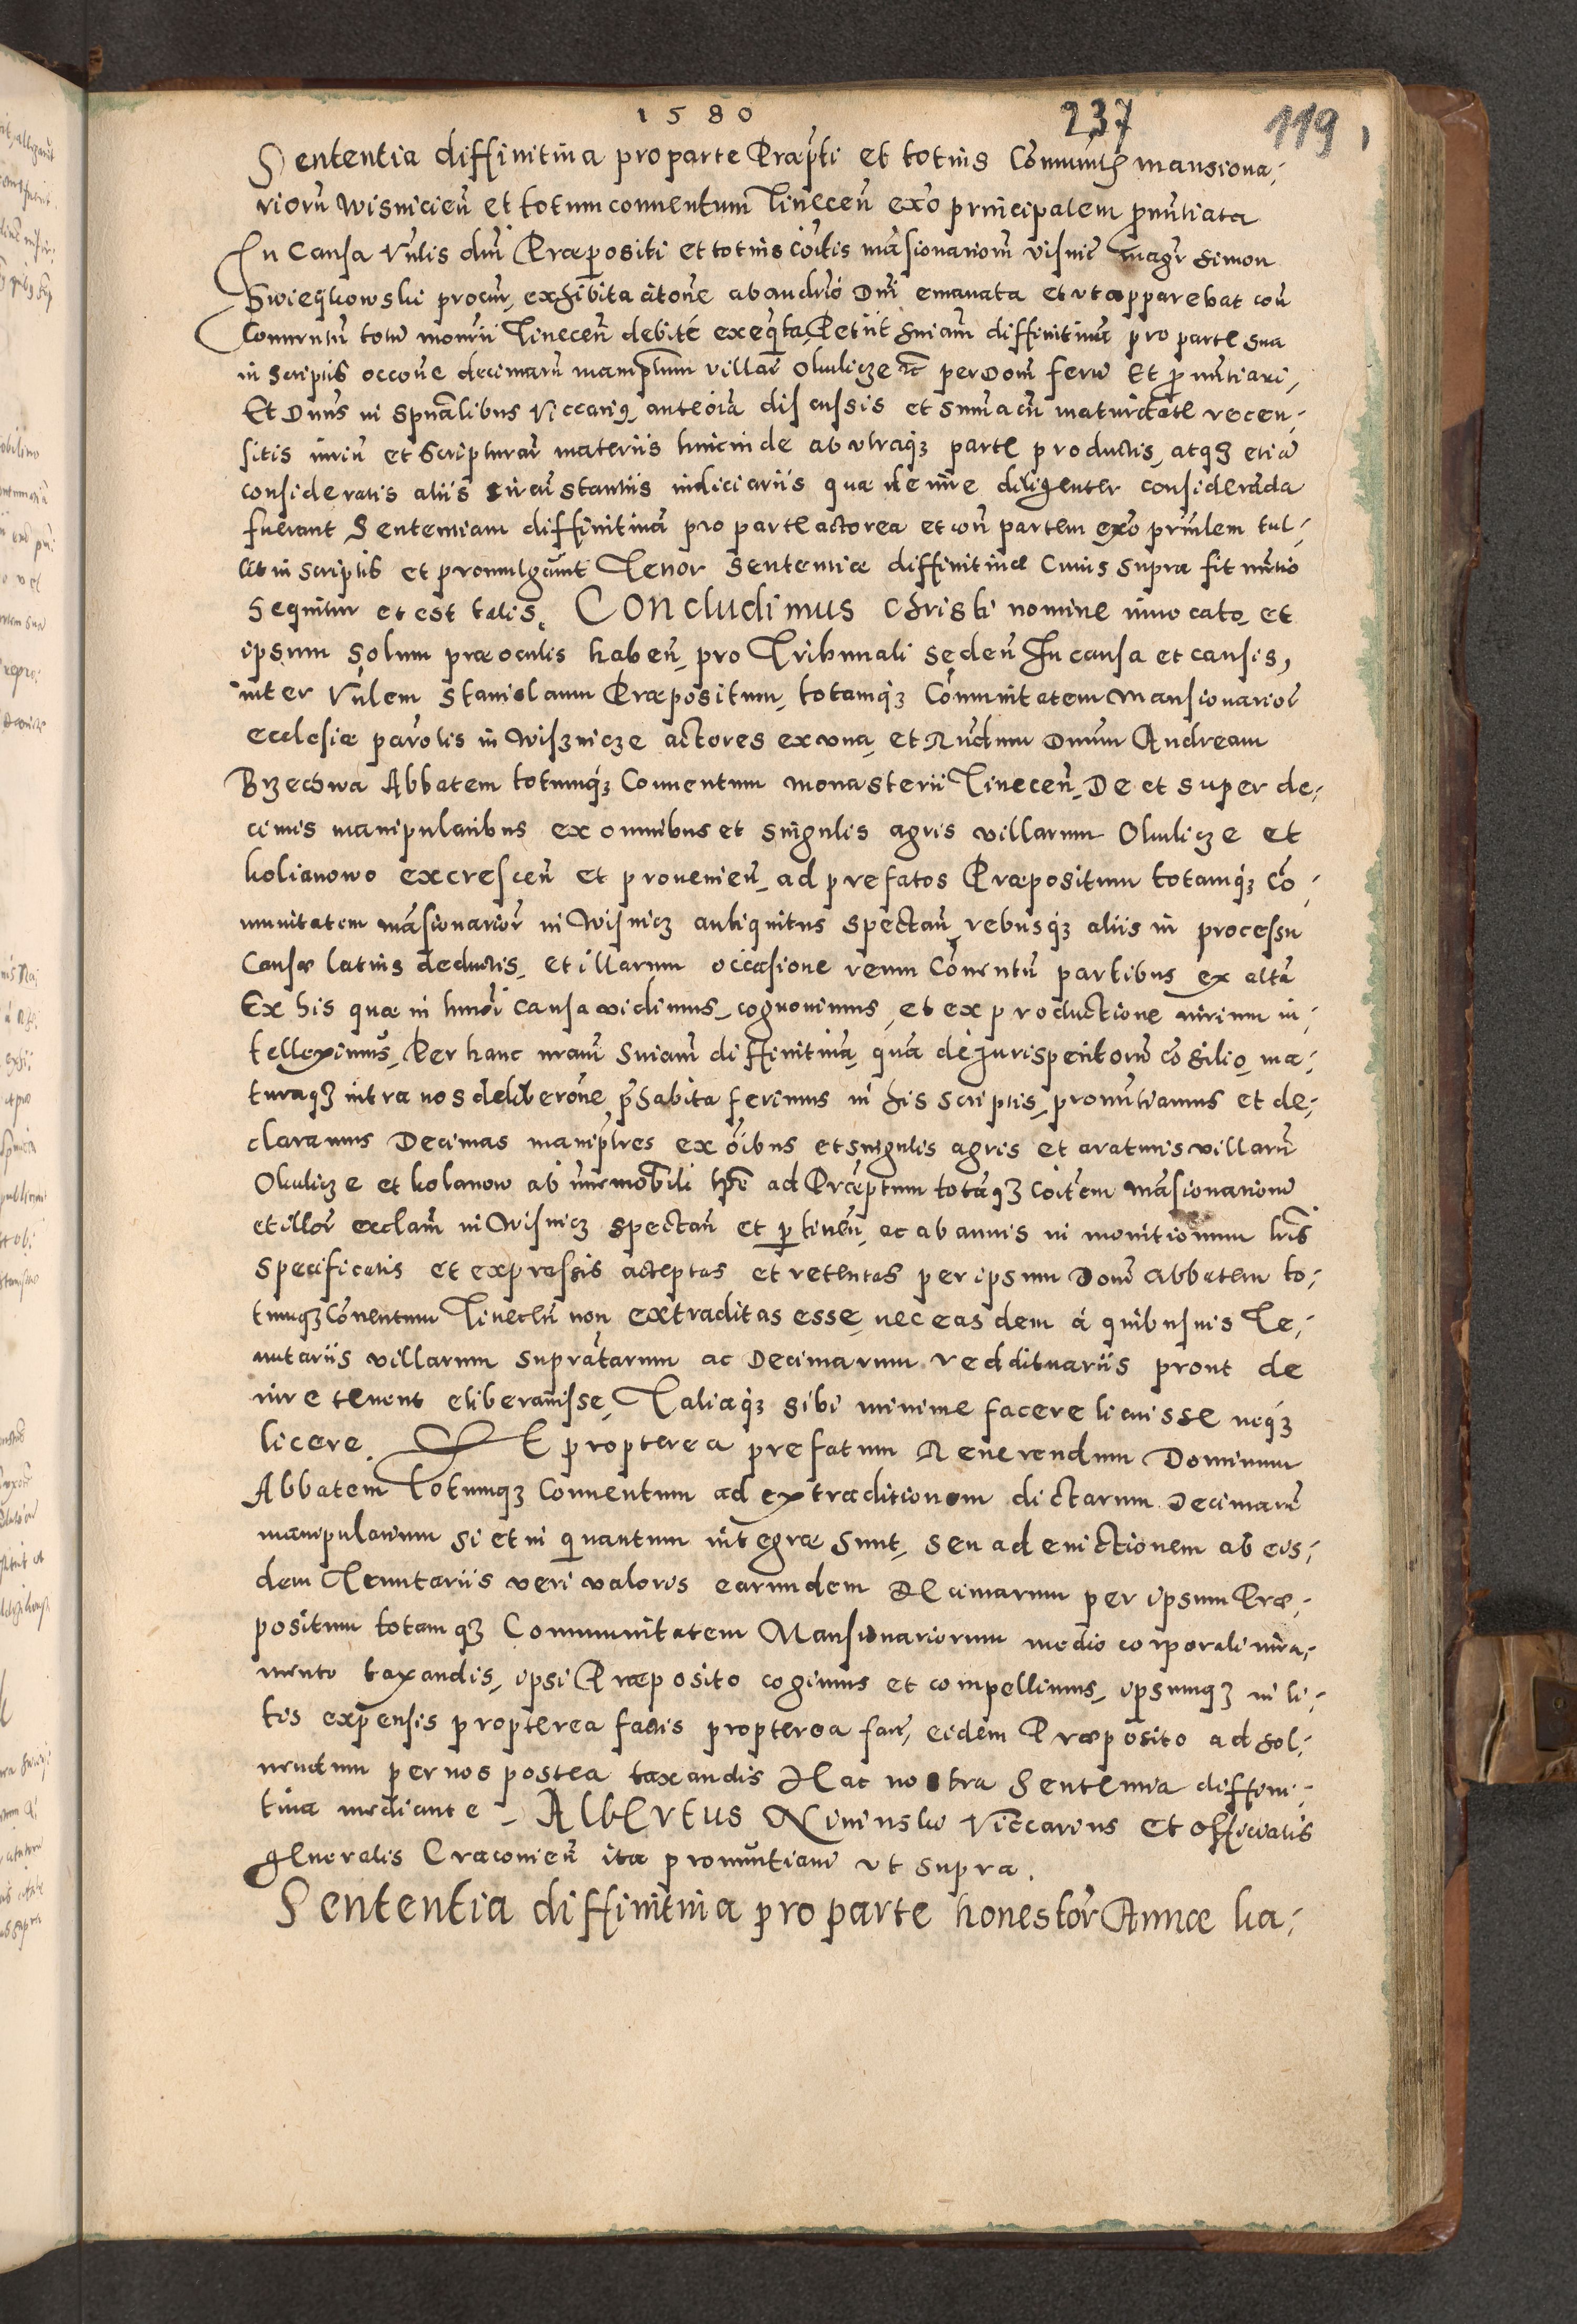 1580
237
119
Sententia diffinitiua pro parte Præpti et totius Com̄unit͠s mansiona-
riorū Wisnicien̄ et totum conuentum Tinecen̄ ex o principalem pron̄utiata
In Causa Vn̄lis dn̄i Præpositi et totius cōitis māsionariorū Visnic̄ Magr̄ Simon
Swieçkowski procur, exhibita citōne ab andriō Dn̄i emanata et vt apparebat con̄
Conuentū totū monr̄ii Tinecen̄ debité exeq̄ta Petiit sn̄iam diffinitiuā pro parte sua
in scriptis occōne decimarū manip̄lium villar̄ Okulicze etc̄ per Dom̄ ferri Et pron̄utiari,
Et Dn̄us in spūalibus Viccariq, anteōia discussis et sum̄a cū maturitate recen-
sitis iuriū et Scripturar̄ materiis hincinde ab vtraq̨ parte productis, atq̨ etiā
consideratis aliis circumstantiis iudiciariis quæ de iure diligenter considerāda
fuerant Sententiam diffinitiuā pro parte actorea et con̄ partem ex o prin̄lem tul-
lit in scriptis et promulgauit Tenor Sententiæ diffinitiuæ Cuius supra fit mentio
Sequitur et est talis. Concludimus Christi nomine inuocato, et
ipsum solum præ oculis haben̄, pro Tribunali seden̄ In causa et causis,
inter Vn̄lem Stanislaum Præpositum, totamq̨ Com̄unitatem Mansionarior̄
ecclesiæ parōlis in Wisznicze actores ex vna, et Rn̄dum Dn̄um Andream
Brzechwa Abbatem totumq̨ Conuentum monasterii Tinecen̄, De et super de-
cimis manipularibus ex omnibus et singulis agris villarum Okulicze et
kolianowo excrescen̄ et prouenien̄, ad prefatos Præpositum totamq̨ Cō-
munitatem māsionarior̄ in Wisnicz antiquitus spectan̄, rebusq̨ aliis in processu
Causæ latius deductis, et illarum occasione reum Cōuentū partibus ex altā
Ex his quæ in hmōi causa vidimus, cognouimus, et ex productione iurium in-
telleximus, Per hanc nram̄ Sn̄iam diffinitiuā, quā de jurisperitorū cōsilio, ma-
turaq̨ intra nos deliberōne p̄habita ferimus in his scriptis, pronuntiamus et de-
claramus Decimas manip̄lres ex ōibus et singulis agris et araturis villarū
Okulicze et kolanow ab im̄emorabili tp̄e ad Præp̄tum totāq̨ cōitem Māsionariorū
et illor̄ eccl̄am in Wisnicz spectan̄ et pertinen̄, ac ab annis in monitionum lr̄is
specificatis et expressis acceptas et retentas per ipsum Dom̄ Abbatem to-
tumq̨ Cōuentum Tinecen̄ non extraditas esse, nec easdem á quibusuis Te-
nutariis villarum supratarum ac Decimarum reddituariis prout de
iure tenent eliberauisse, Taliaq̨ sibi minime facere licuisse neq̨
licere. Et propterea prefatum Reuerendum Dominum
Abbatem Totumq̨ Conuentum ad extraditionem dictarum Decimarū
manipularium si et in quantum integræ sunt, seu ad euictionem ab eis-
dem Tenutariis veri valoris earundem Decimarum per ipsum Præ-
positum totamq̨ Communitatem Mansionariorum medio corporali iura-
mento taxandis, ipsi Præposito cogimus et compellimus, ipsumq̨ in li-
tis expensis propterea factis propterea fact, eidem Præposito ad sol-
uendum per nos postea taxandis Hac nostra Sententia diffini-
tiua mediante, Albertus Niminski Viccarius et officialis
generalis Cracouien̄ ita pronuntiaui vt supra.
Sententia diffinitiua pro parte honestor̄ Annæ ka-